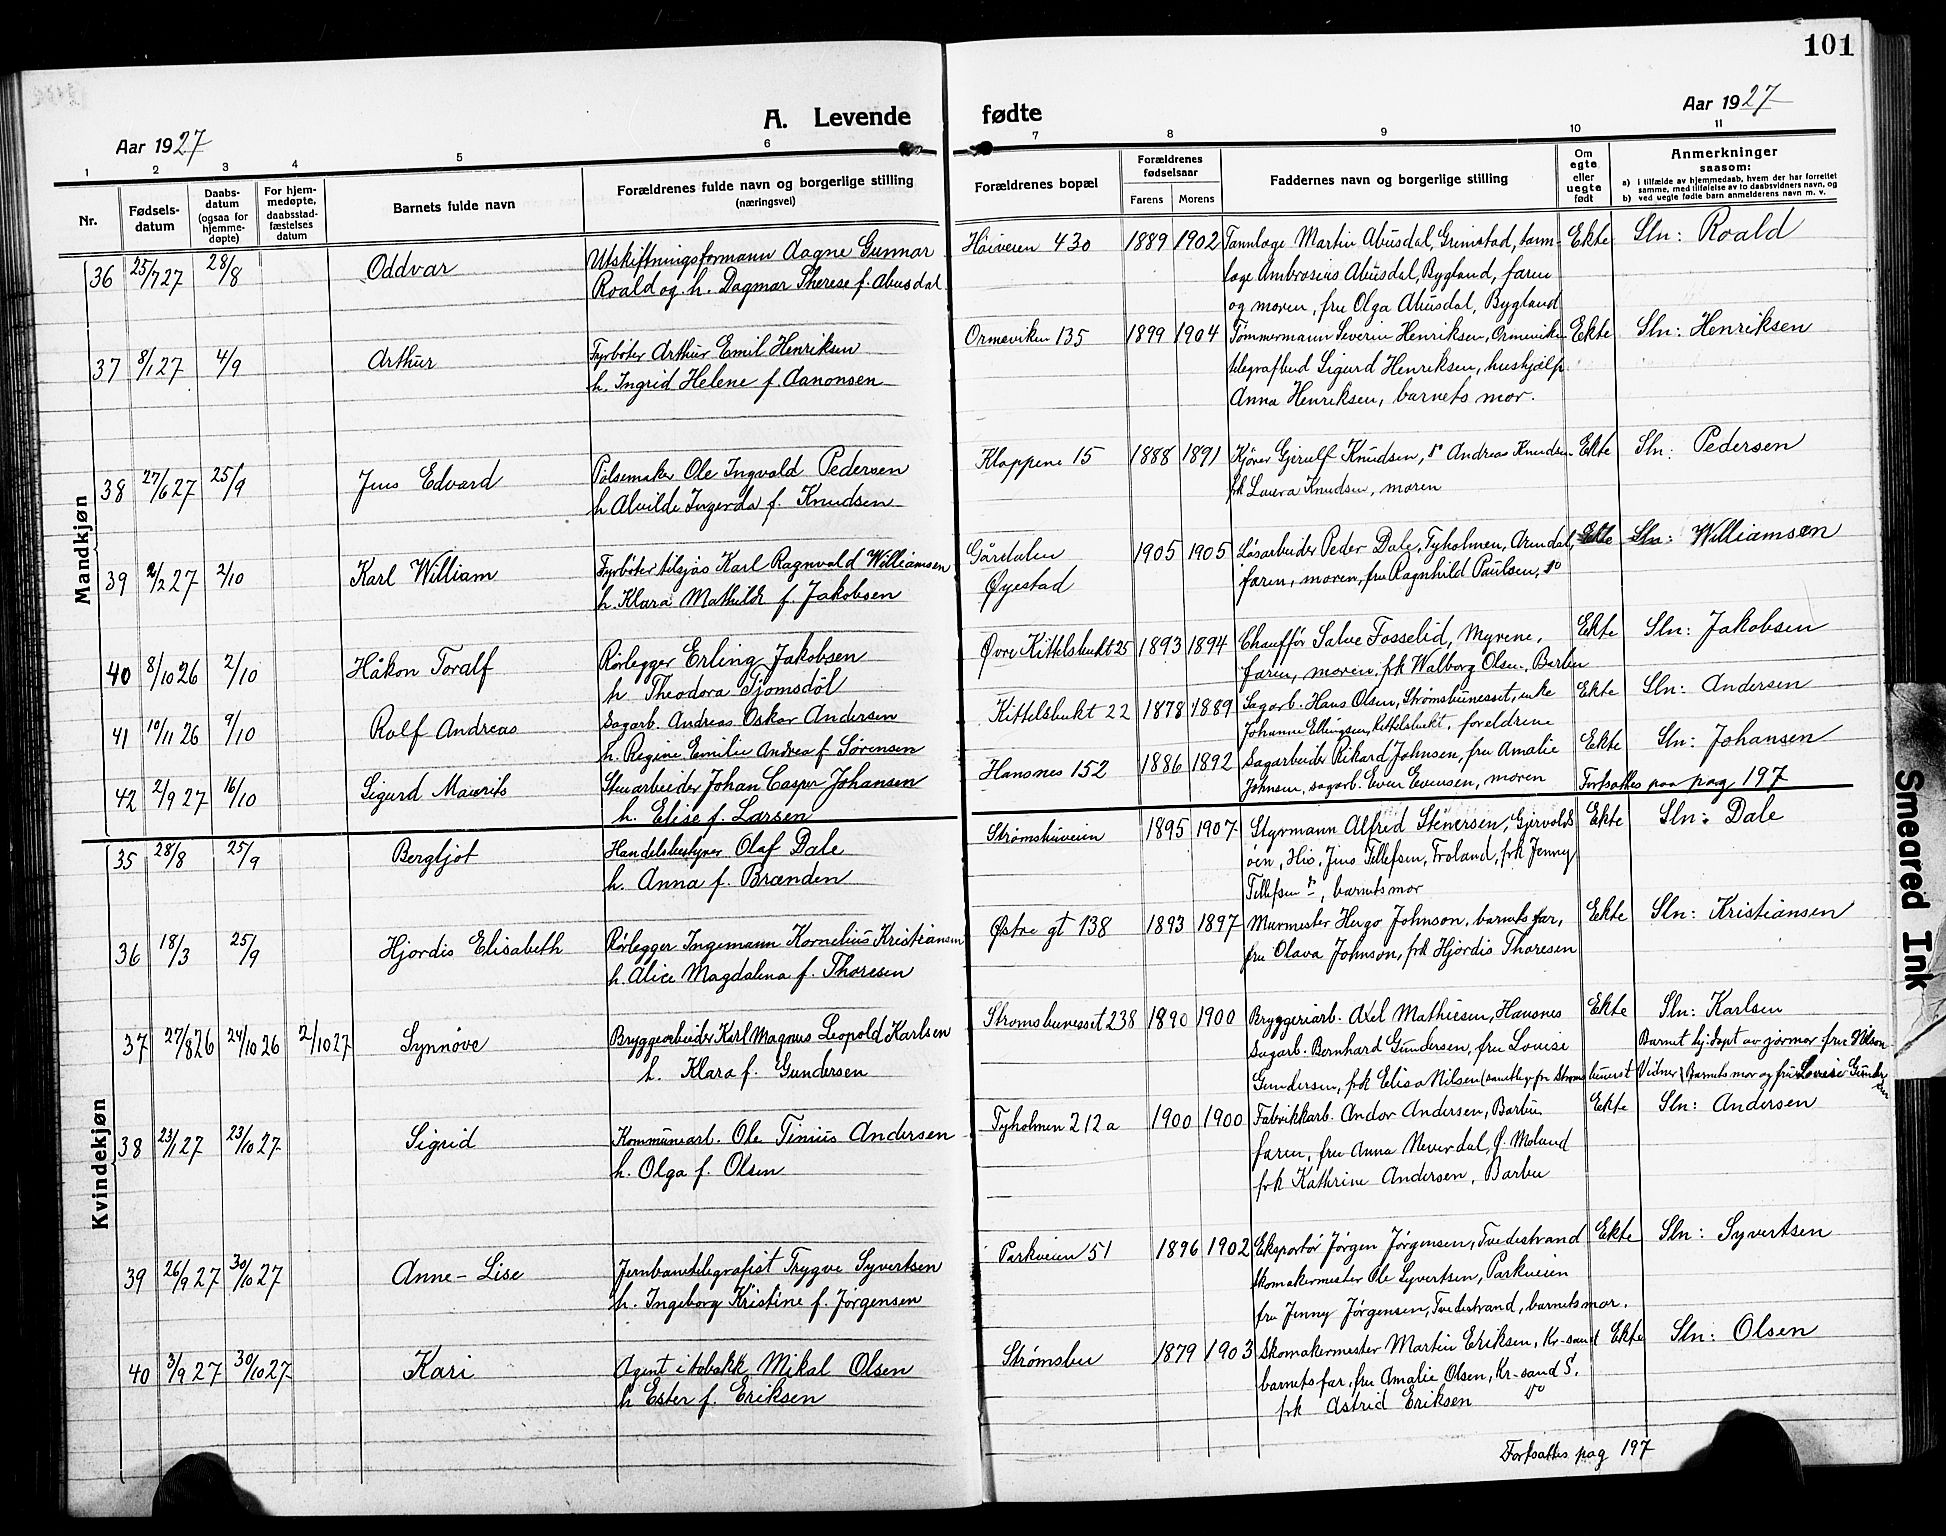 101
A. Levende fødte
Aar 1927
Aar 1927
1 2 3 4 5 6 7 8 9 10 11
Nr.
Fødsels-datum
Daabs-datum (ogsaa for hjemme-døpte)
For hjem-medøpte, daabsstad-fæstelses datum
Barnets fulde navn
Forældrenes fulde navn og borgerlige stilling (næringsvei)
Forældrenes bopæl
Forældrenes fødselsaar
Farens Morens
Faddernes navn og borgerlige stilling
Om egte eller uegte født
Anmerkninger saasom:
a) i tilfælde av hjemmedaab, hvem der har forrettet samme, med tilføielse av to daabsvidners navn, og
b) ved uegte fødte barn anmelderens navn m. v.
Mandkjøn
36 25/7 27 28/8 Oddvar Utskiftningsformann Aagne Gunnar Høiveien 430 1889 1902 Tannlæge Martin Abusdal, Grimstad, tann- Ekte Sln: Roald
Roald og h. Dagmar Therese f. Abusdal læge Ambrosius Abusdal, Bygland, faren
og moren, fru Olga Abusdal, Bygland
37 8/1 27 4/9 Arthur Fyrbøter Arthur Emil Henriksen Ormeviken 135 1899 1904 Tømmermann Severin Henriksen, Ormeviken Ekte Sln: Henriksen
h. Ingrid Helene f. Aanonsen telegrafbud Sigurd Henriksen, hushjælp
Anna Henriksen, barnets mor.
38 27/6 27 25/9 Jens Edvard Pølsemaker Ole Ingvald Pedersen Kloppene 15 1888 1891 Kjører Gjerulf Knudsen, do Andreas Knudsen Ekte Sln: Pedersen
h Alvilde Ingerda f. Knudsen frk Laura Knudsen, moren
39 2/2 27 2/10 Karl William Fyrbøter tilsjøs Karl Ragnvald Williamsen Gårdalen 1905 1905 Løsarbeider Peder Dale, Tyholmen, Arendal, Ekte Sln: Williamsen
h. Klara Mathilde f. Jakobsen Øyestad faren, moren, fru Ragnhild Paulsen, do
40 8/10 26 2/10 Håkon Toralf Rørlegger Erling Jakobsen Øvre Kittelsbukt 25 1893 1894 Chauffør Salve Fosselid, Myrene, Ekte Sln: Jakobsen
h Theodora Gjomsdöl faren, moren, frk Walborg Olsen, Barbu
41 10/11 26 9/10 Rolf Andreas Sagarb. Andreas Oskar Andersen Kittelsbukt 22 1878 1889 Sagarb. Hans Olsen, Strømsbunesset, enke Ekte Sln: Andersen
h. Regine Emilie Andrea f Sørensen Johanne Ellingsen, Kittelsbukt, foreldrene
42 2/9 27 16/10 Sigurd Maurits Stenarbeider Johan Casper Johansen Hansnes 152 1886 1892 Sagarbeider Rikard Johnsen, fru Amalie Ekte Sln: Johansen
h. Elise f. Larsen Johnsen, sagarb. Even Evensen, moren Fortsattes paa pag 197
Kvindekjøn
35 28/8 25/9 Bergljot Handelsbestyrer Olaf Dale Strømsbuveien 1895 1907 Styrmann Alfred Stenersen, Gjervolds Ekte Sln: Dale
h. Anna f. Brænden øen, His, Jens Tellefsen, Froland, frk Jenny
Tellefsen do, barnets mor
36 18/3 25/9 Hjordis Elisabeth Rørlegger Ingemann Kornelius Kristiansen Østre gt 138 1893 1897 Murmester Hergo Johnson, barnets far, Ekte Sln: Kristiansen
h. Alice Magdalena f. Thoresen fru Olava Johnson, frk Hjørdis Thoresen
37 27/8 26 24/10 26 2/10 27 Synnøve Bryggearbeider Karl Magnus Leopold Karlsen Strømsbunesset 238 1890 1900 Bryggeriarb. Axel Mathiesen, Hansnes Ekte Sln: Karlsen
h. Klara f. Gundersen Sagarb. Bernhard Gundersen, fru Louise Barnet hj.døpt av jormor fru Nilson
Gundersen, frk Elisa Nilsen (samtlige fra Strømsbunesst Vidner: Barnets mor og fru Lovise Gundersen
38 23/1 27 23/10 27 Sigrid Kommunearb. Ole Tinius Andersen Tyholmen 212 a 1900 1900 Fabrikkarb. Andor Andersen, Barbu Ekte Sln: Andersen
h. Olga f. Olsen faren, fru Anna Neverdal, Ø. Moland
frk Kathrine Andersen, Barbu
39 26/9 27 30/10 27 Anne-Lise Jernbanetelegrafist Trygve Syvertsen Parkveien 51 1896 1902 Eksportør Jørgen Jørgensen, Tvedestrand Ekte Sln: Syvertsen
h. Ingeborg Kristine f. Jørgensen skomakermester Ole Syvertsen, Parkveien
fru Jenny Jørgensen, Tvedestrand, barnets mor.
40 3/9 27 30/10 27 Kari Agent i tobakk Mikal Olsen Strømsbu 1879 1903 Skomakermester Martin Eriksen, Kr-sand Ekte Sln: Olsen
h Ester f. Eriksen barnets far, fru Amalie Olsen, Kr-sand S.
frk Astrid Eriksen do
Fortsattes pag 197
Smeared Ink